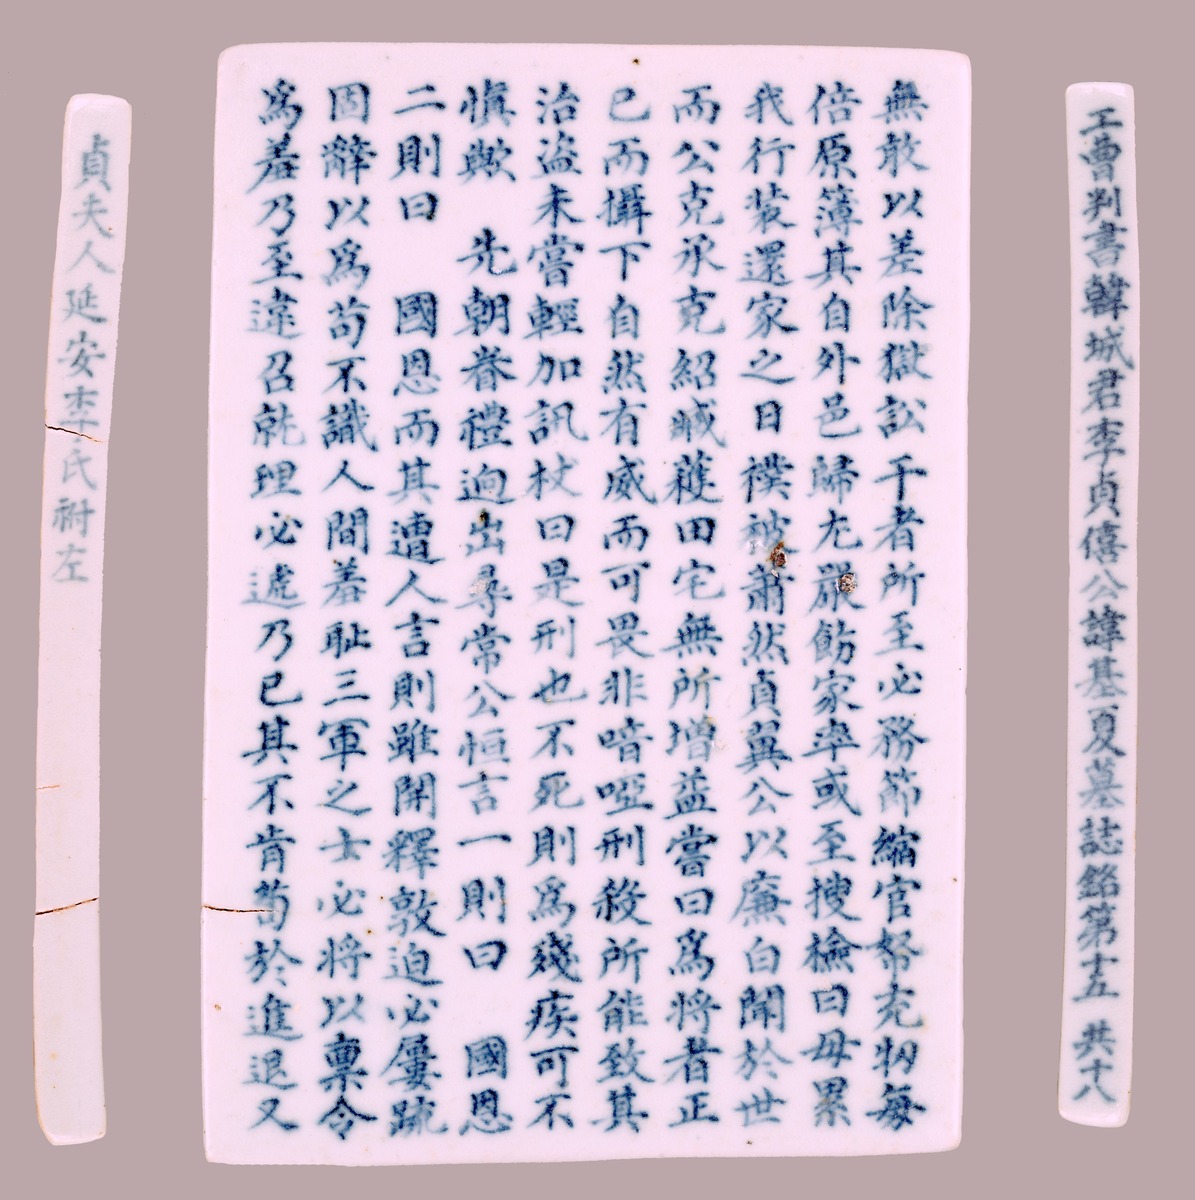 工曹判書韓城君李貞僖公諱基夏墓誌銘第十五 共十八
無敢以差除獄訟干者所至必務節縮官帑充牣每
倍原簿其自外邑歸尤嚴飭家率或至搜檢曰毋累
我行裝還家之日襆被蕭然貞翼公以廉白聞於世
而公克承克紹臧穫田宅無所增益嘗曰爲將者正
已而攝下自然有威而可畏非喑啞刑殺所能致其
治盜未嘗輕加訊杖曰是刑也不死則爲殘疾可不
愼歟 先朝眷禮逈出尋常公恒言一則曰 國恩
二則曰 國恩而其遭人言則雖開釋敦迫必屢疏
固辭以爲苟不識人間羞恥三軍之士必將以稟令
爲羞乃至違召就理必遞乃已其不肯苟於進退又
貞夫人延安李氏祔左